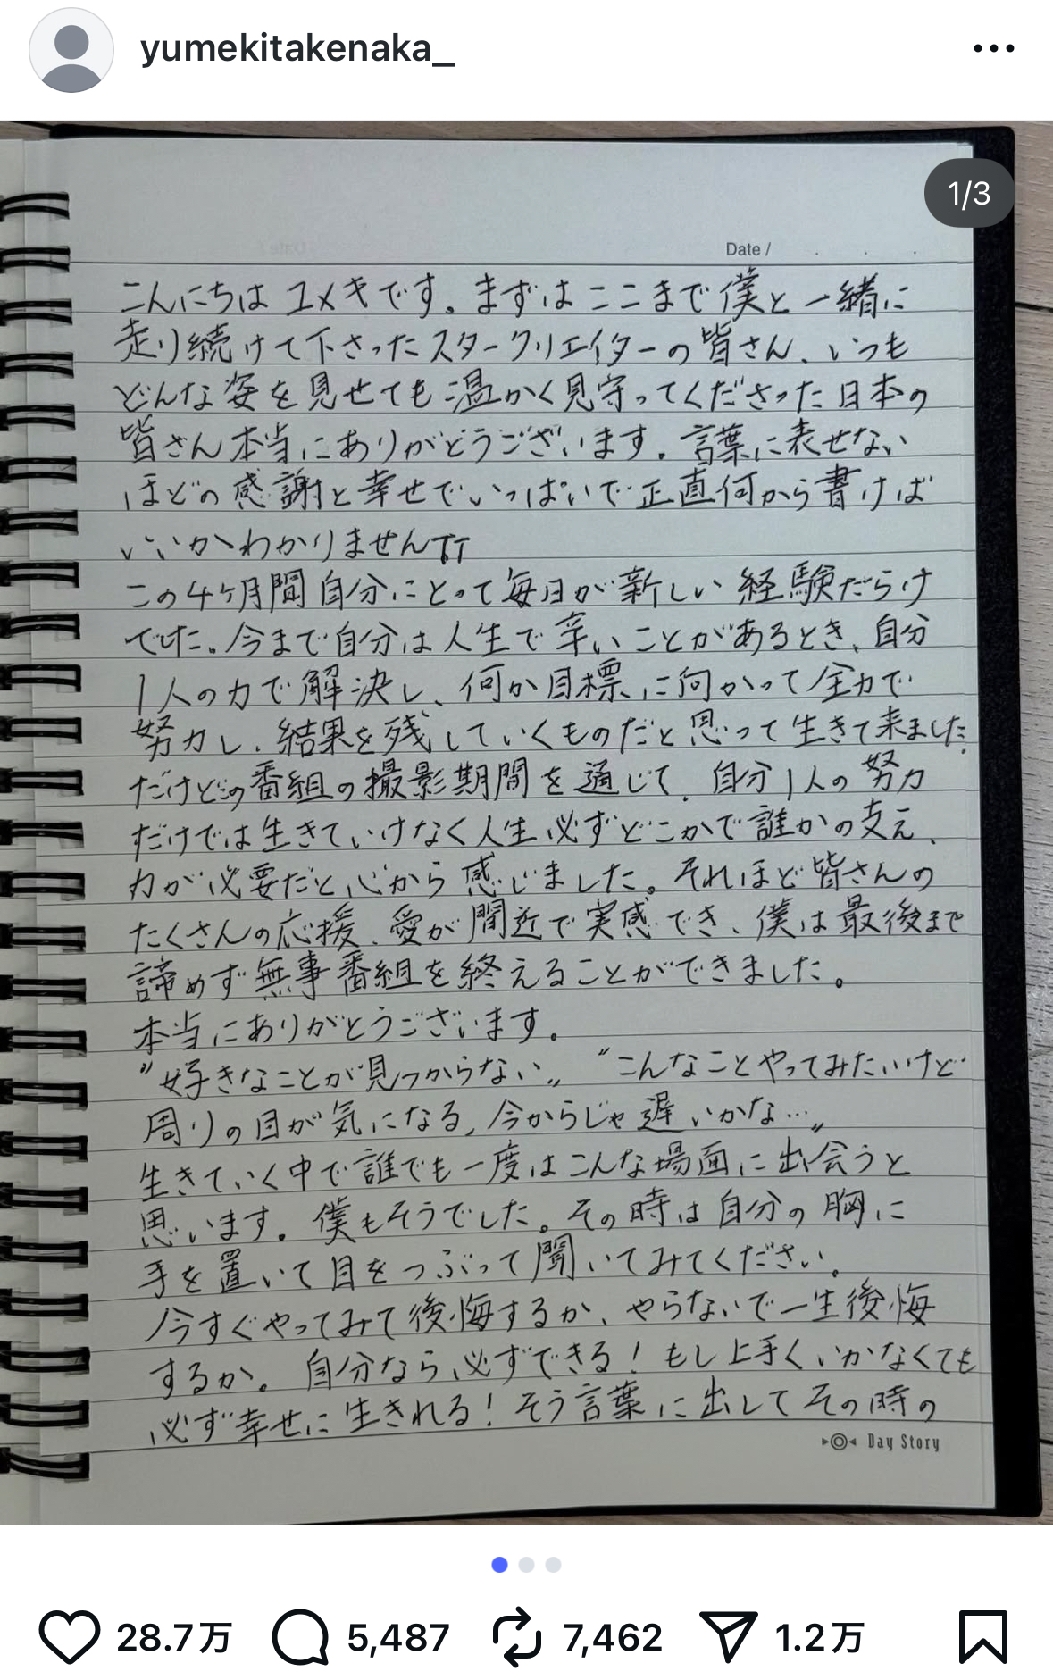 yumekitakenaka_
1/3
Date /
こんにちはユメキです。まずはここまで僕と一緒に
走り続けて下さったスタークリエイターの皆さん、いつも
どんな姿を見せても温かく見守ってくださった日本の
皆さん本当にありがとうございます。言葉に表せない
ほどの感謝と幸せでいっぱいで正直何から書けば
いいかわかりませんTT
この4ヶ月間自分にとって毎日が新しい経験だらけ
でした。今まで自分は人生で辛いことがあるとき、自分
1人の力で解決し、何か目標に向かって全力で
努力し、結果を残していくものだと思って生きて来ました。
だけどこの番組の撮影期間を通じて、自分1人の努力
だけでは生きていけなく人生必ずどこかで誰かの支え、
力が必要だと心から感じました。それほど皆さんの
たくさんの応援、愛が間近で実感でき、僕は最後まで
諦めず無事番組を終えることができました。
本当にありがとうございます。
"好きなことが見つからない" "こんなことやってみたいけど
周りの目が気になる、今からじゃ遅いかな…"
生きていく中で誰でも一度はこんな場面に出会うと
思います。僕もそうでした。その時は自分の胸に
手を置いて目をつぶって聞いてみてください。
今すぐやってみて後悔するか、やらないで一生後悔
するか。自分なら必ずできる!もし上手くいかなくても
必ず幸せに生きれる!そう言葉に出してその時の
Day Story
28.7万 5,487 7,462 1.2万